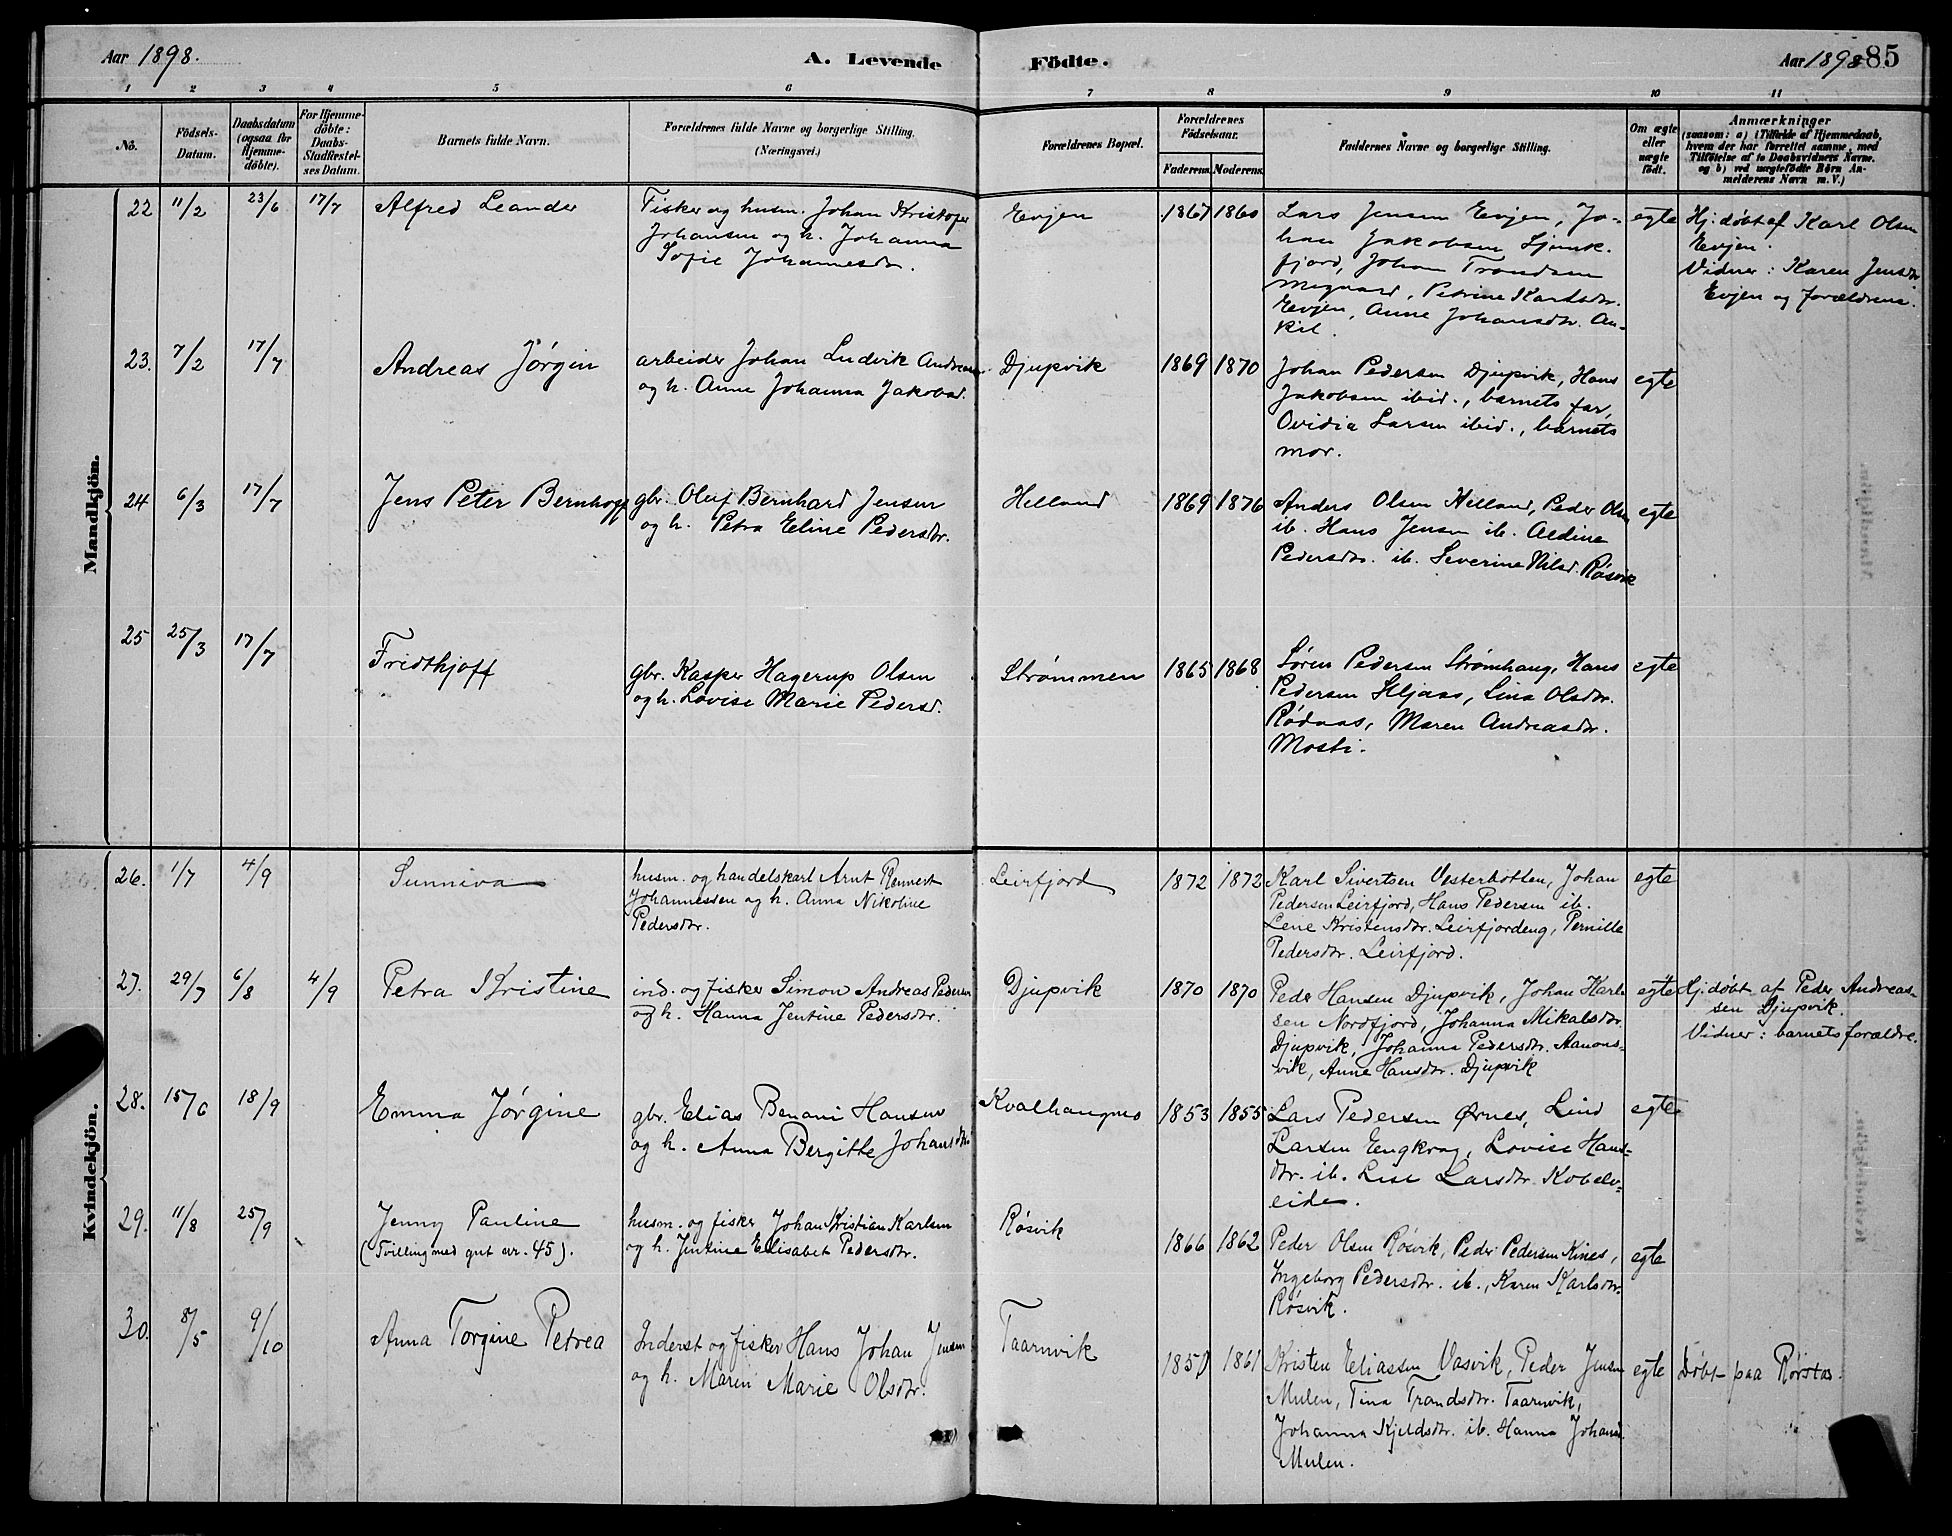 Aar 1898.
A. Levende Födte.
Aar 1898 85
1 2 3 4 5 6 7 8 9 10 11
No.
Födsels-
Datum.
Daabsdatum
(ogsaa for
Hjemme-
döbte).
For Hjemme-
döbte:
Daabs-
Stadfæstel-
ses Datum.
Barnets fulde Navn.
Forældrenes fulde Navne og borgerlige Stilling.
(Næringsvei.)
Forældrenes Bopæl.
Forældrenes
Födselsaar.
Faderens. Moderens.
Faddernes Navne og borgerlige Stilling.
Om ægte
eller
uægte
födt.
Anmærkninger
(saasom: a) i Tilfælde af Hjemmedaab,
hvem der har forrettet samme, med
Tilföielse af to Daabsvidners Navne.
og b) ved uægtefödte Börn An-
melderens Navn m. V.)
Mandkjön.
22 11/2 23/6 17/7 Alfred Leander
Fisker og husm. Johan Kristofer
Johansen og h. Johanna
Sofie Johannesdr.
Evjen
1867 1860
Lars Jensen Evjen, Jo-
han Jakobsen
fjord, Johan Trondsen
Megaard, Petrine Karlsdr.
Evjen, Anne Johansdr. An-
kil.
egte
Hj. døbt af Karl Olsen
Evjen.
Vidner: Karen Jensdr
Evjen og forældrene.
23. 7/2 17/7 Andreas Jørgin
arbeider Johan Ludvik Andreasen
og h. Anne Johanna Jakobsd.
Djupvik
1869 1870
Johan Pedersen Djupvik, Hans
Jakobsen ibid., barnets far,
Ovidia Larsen ibid., barnets
mor.
egte
24 6/3 17/7 Jens Peter Bernhoff
gbr. Oluf Bernhard Jensen
og h. Petra Eline Pedersdr.
Helland
1869 1876
Anders Olsen Helland, Peder Olsen
ib. Hans Jensen ib. Aldine
Pedersdr. ib. Severine Nilsd. Røsvik
egte
25 25/3 17/7 Fridthjoff
gbr. Kasper Hagerup Olsen
og h. Lovise Marie Pedersd.
Strømmen
1865 1868
Søren Pedersen Strømhaug, Hans
Pedersen Sljaas, Lina Olsdr.
Rødaas, Maren Andreasdr.
Mosti.
egte
Kvindekjön.
26. 1/7 4/9 Sunniva
husm. og handelskarl Arnt Rennert
Johannessen og h. Anna Nikoline
Pedersdr.
Leirfjord
1872 1872
Karl Sivertsen Vesterbotten, Johan
Pedersen Leirfjord, Hans Pedersen ib.
Lene Kristensdr. Leirfjordeng, Pernille
Pedersdr. Leirfjord.
egte
27. 29/7 6/8 4/9 Petra Kristine
ind. og fisker Simon Andreas Pedersen
og h. Hanna Jentine Pedersdr.
Djupvik
1870 1870
Peder Hansen Djupvik, Johan Karl-
sen Nordfjord, Johanna Mikalsdr.
Djupvik, Johanna Pedersdr. Aanons-
vik, Anne Hansdr. Djupvik
egte
Hj. døbt af Peder Andreas-
sen Djupvik.
Vidner: barnets forældre.
28. 15/6 18/9 Emma Jørgine
gbr. Elias Benoni Hansen
og h. Anna Bergitte Johansdr.
Kvalhaugnes
1853 1855
Lars Pedersen Ørnes, Lind
Larsen Engkrog, Lovise Hans-
dr. ib. Lise Larsdr. Kobelv-
eide.
egte
29. 11/8 25/9 Jenny Pauline
(Tvilling med gut nr. 45).
husm. og fisker Johan Kristian Karlsen
og h. Jentine Elisabet Pedersdr.
Røsvik
1866 1862
Peder Olsen Røsvik, Peder Pedersen Kines,
Ingeborg Pedersdr. ib., Karen Karlsdr.
Røsvik.
egte
30. 8/5 9/10 Anna Torgine Petrea
Inderst og fisker Hans Johan Jensen
og h. Maren Marie Olsdr.
Taarnvik
1861
Kristen Eliassen Vasvik, Peder Jensen
Mulen, Tina Trondsdr. Taarnvik,
Johanna Kjeldsdr. ib. Hanna Johansd.
Mulen.
egte
Døbt paa Rørstad.